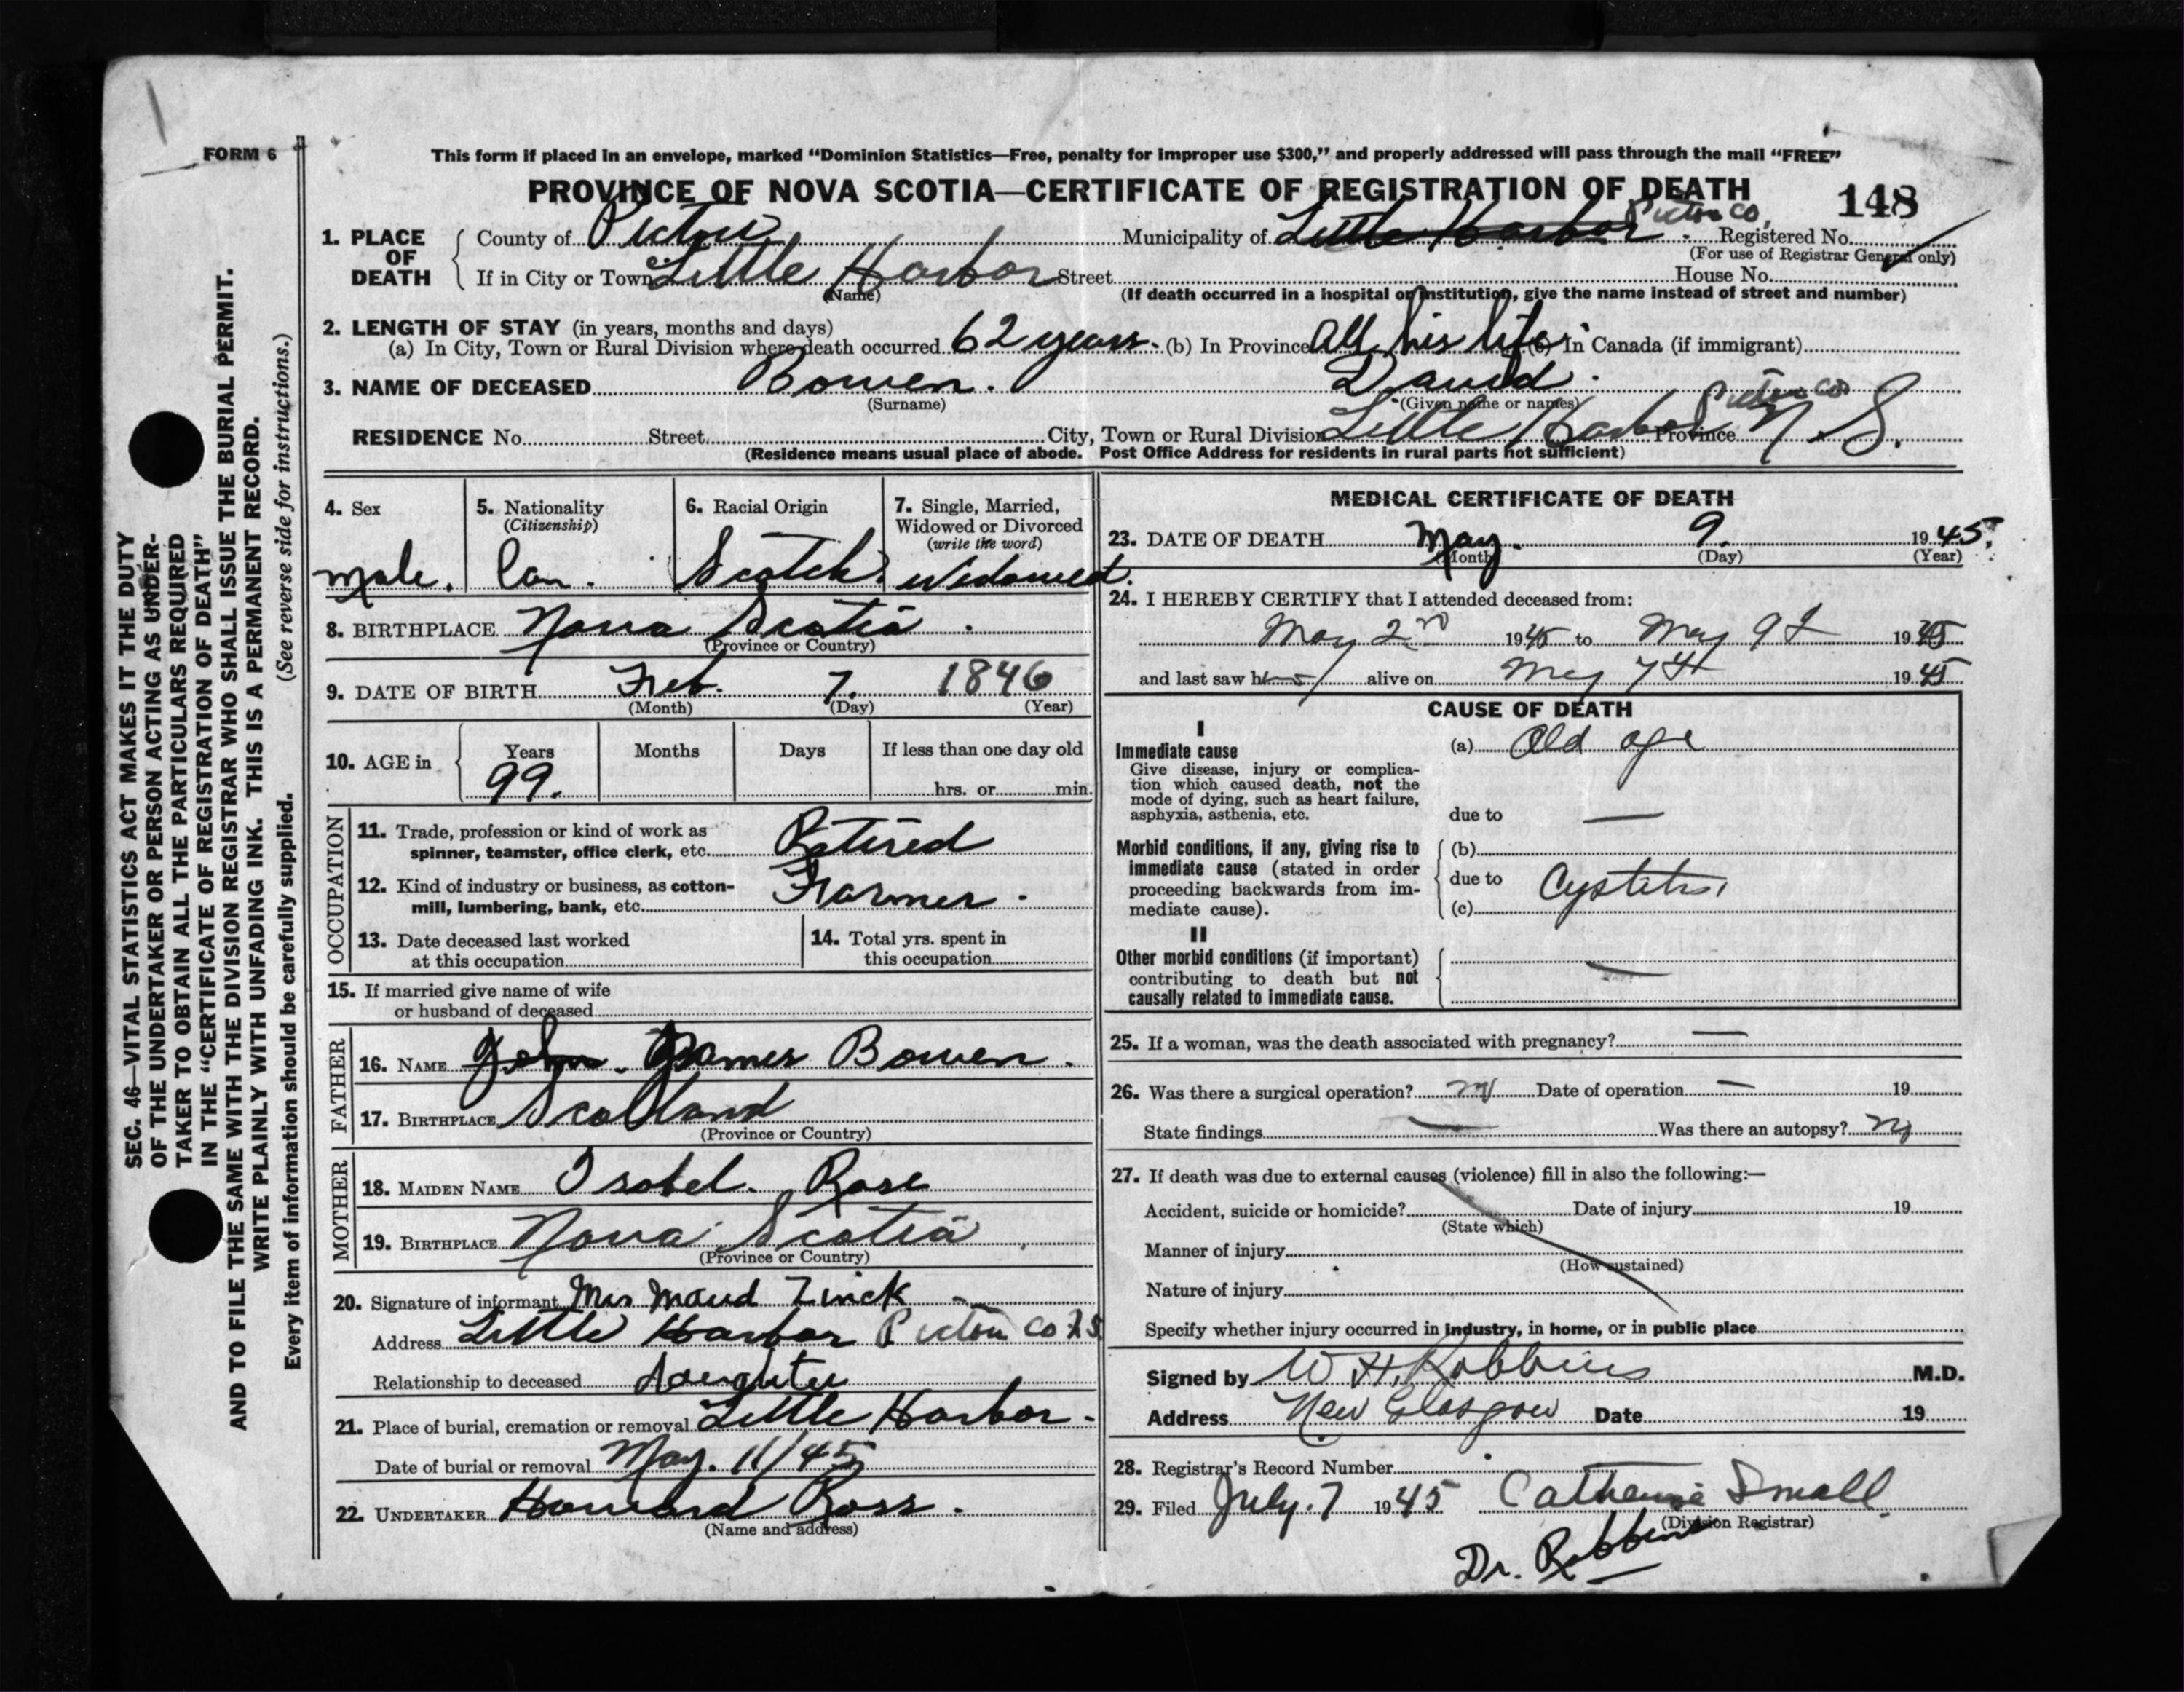 FORM 6
This form if placed in an envelope, marked “Dominion Statistics—Free, penalty for improper use $300,” and properly addressed will pass through the mail “FREE”
PROVINCE OF NOVA SCOTIA—CERTIFICATE OF REGISTRATION OF DEATH 148
1. PLACE OF DEATH
County of Pictou Municipality of Little Harbor Pictou Co. Registered No.
(For use of Registrar General only)
If in City or Town Little Harbor Street House No.
(Name) (If death occurred in a hospital or institution, give the name instead of street and number)
2. LENGTH OF STAY (in years, months and days)
(a) In City, Town or Rural Division where death occurred 62 years. (b) In Province All his life. (c) In Canada (if immigrant)
3. NAME OF DECEASED Bowen. David.
(Surname) (Given name or names)
RESIDENCE No. Street City, Town or Rural Division Little Harbor Pictou Co. Province N.S.
(Residence means usual place of abode. Post Office Address for residents in rural parts not sufficient)
4. Sex 5. Nationality (Citizenship) 6. Racial Origin 7. Single, Married, Widowed or Divorced (write the word)
Male. Can. Scotch. Widowed.
8. BIRTHPLACE Nova Scotia.
(Province or Country)
9. DATE OF BIRTH Feb. 7. 1846
(Month) (Day) (Year)
10. AGE in Years Months Days If less than one day old
99. hrs. or min.
OCCUPATION
11. Trade, profession or kind of work as spinner, teamster, office clerk, etc. Retired
12. Kind of industry or business, as cotton-mill, lumbering, bank, etc. Farmer.
13. Date deceased last worked at this occupation
14. Total yrs. spent in this occupation
15. If married give name of wife or husband of deceased
FATHER
16. NAME John. James Bowen.
17. BIRTHPLACE Scotland
(Province or Country)
MOTHER
18. MAIDEN NAME Isobel. Rose
19. BIRTHPLACE Nova Scotia.
(Province or Country)
20. Signature of informant Mrs Maud Zinck
Address Little Harbor Pictou Co N S
Relationship to deceased daughter
21. Place of burial, cremation or removal Little Harbor.
Date of burial or removal May. 11/45
22. UNDERTAKER Howard Ross.
(Name and address)
MEDICAL CERTIFICATE OF DEATH
23. DATE OF DEATH May. 9. 1945.
(Month) (Day) (Year)
24. I HEREBY CERTIFY that I attended deceased from:
May 2nd 1945 to May 9th 1945
and last saw him alive on May 7th 1945
CAUSE OF DEATH
I
Immediate cause (a) Old age
Give disease, injury or complication which caused death, not the mode of dying, such as heart failure, asphyxia, asthenia, etc.
due to —
Morbid conditions, if any, giving rise to immediate cause (stated in order proceeding backwards from immediate cause).
(b)
due to Cystitis
(c)
II
Other morbid conditions (if important) contributing to death but not causally related to immediate cause. —
25. If a woman, was the death associated with pregnancy? —
26. Was there a surgical operation? no Date of operation — 19
State findings — Was there an autopsy? no
27. If death was due to external causes (violence) fill in also the following:—
Accident, suicide or homicide? Date of injury 19
(State which)
Manner of injury
(How sustained)
Nature of injury
Specify whether injury occurred in industry, in home, or in public place
Signed by W H. Robbins M.D.
Address New Glasgow Date 19
28. Registrar's Record Number
29. Filed July. 7 1945 Catherine Small
(Division Registrar)
Dr. Robbins
SEC. 46—VITAL STATISTICS ACT MAKES IT THE DUTY
OF THE UNDERTAKER OR PERSON ACTING AS UNDER-
TAKER TO OBTAIN ALL THE PARTICULARS REQUIRED
IN THE “CERTIFICATE OF REGISTRATION OF DEATH”
AND TO FILE THE SAME WITH THE DIVISION REGISTRAR WHO SHALL ISSUE THE BURIAL PERMIT.
WRITE PLAINLY WITH UNFADING INK. THIS IS A PERMANENT RECORD.
Every item of information should be carefully supplied. (See reverse side for instructions.)